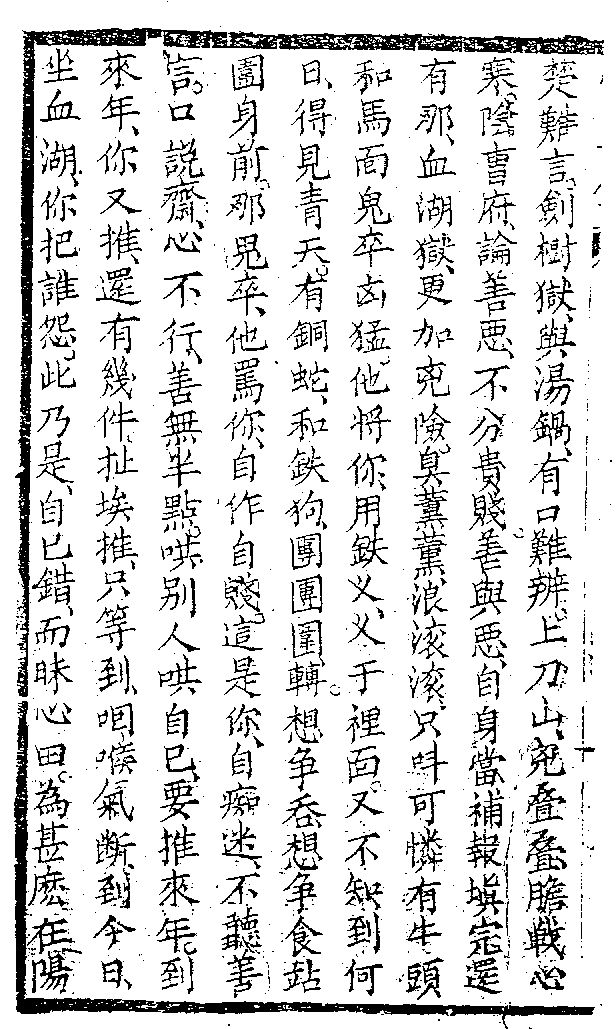 楚難言、劍樹獄、與湯鍋、有口難辨。上刀山、兇疊疊、膽戰心
寒。陰曹府、論善惡、不分貴賤。善與惡、自身當、補報填完。還
有那、血湖獄、更加兇險。臭薰薰、浪滚滚、只呌可憐。有牛頭、
和馬面、鬼卒凶猛。他將你、用鉄义、义于裡面。又不知、到何
日、得見青天。有銅蛇、和鉄狗、團團圍轉。想争吞、想争食、跕
圍身前。那鬼卒、他罵你、自作自賤。這是你、自痴迷、不聽善
言。口說齋、心不行、善無半點。哄別人、哄自已、要推來年。到
來年、你又推、還有幾件。扯埃推、只等到、咽喉氣断。到今日、
坐血湖、你把誰怨。此乃是、自已錯、而昧心田。為甚麽、在陽